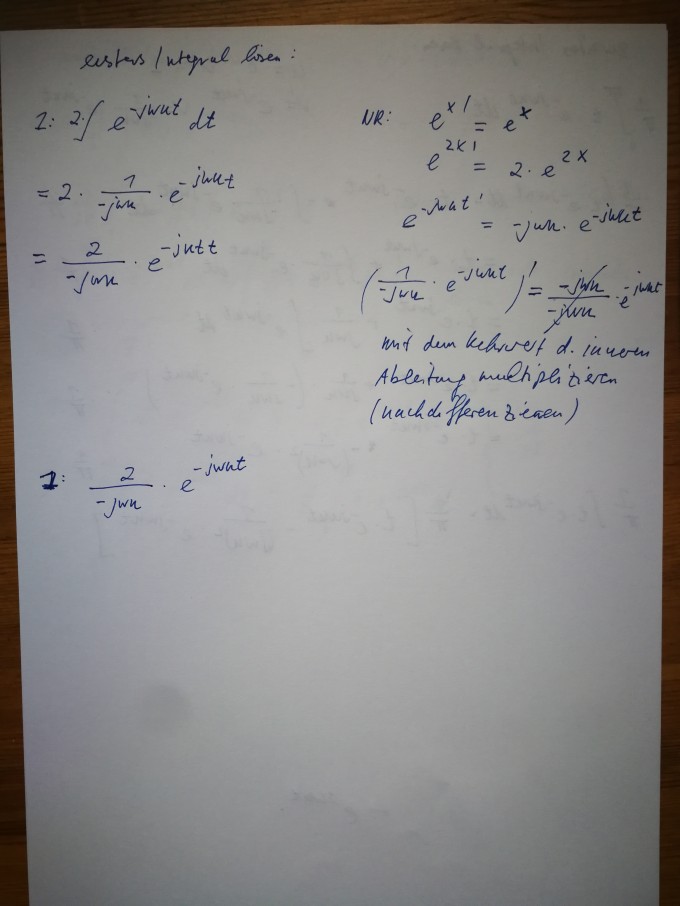 erstens Integral lösen:
1: 2·∫ e^-jωnt dt
= 2 · 1/-jωn · e^-jωnt
= 2/-jωn · e^-jntt
NR: e^x' = e^x
e^2x' = 2 · e^2x
e^-jωnt' = -jωn · e^-jωnt
(1/-jωn · e^-jωnt)' = -jωn/-jωn · e^-jωnt
mit dem Kehrwert d. inneren
Ableitung multiplizieren
(nachdifferenzieren)
1: 2/-jωn · e^-jωnt